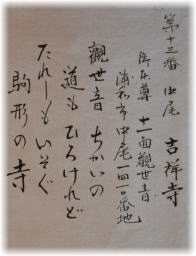 第十三番 中尾 吉祥寺
御本尊 十一面観世音
浦和市中尾一四一〇番地
觀世音 ちかいの
道も ひろけれど
たれしも いそぐ
駒形の寺